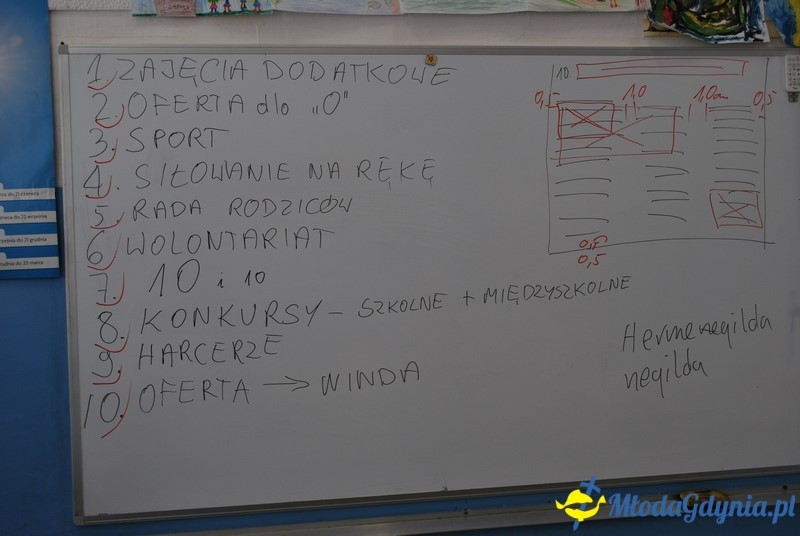 1. ZAJĘCIA DODATKOWE
2. OFERTA dla „0"
3. SPORT
4. SIŁOWANIE NA RĘKĘ
5. RADA RODZICÓW
6. WOLONTARIAT
7. 10 i 10
8. KONKURSY – SZKOLNE + MIĘDZYSZKOLNE
9. HARCERZE
10. OFERTA → WINDA
10.
0,5 1,0 1,0cm 0,5
0,5
0,5
Hermenegilda
negilda
MłodaGdynia.pl